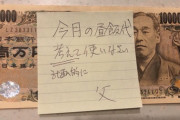 10000
今月の昼食代
考えて使いなさい
計画的に
父
壱万円
10000